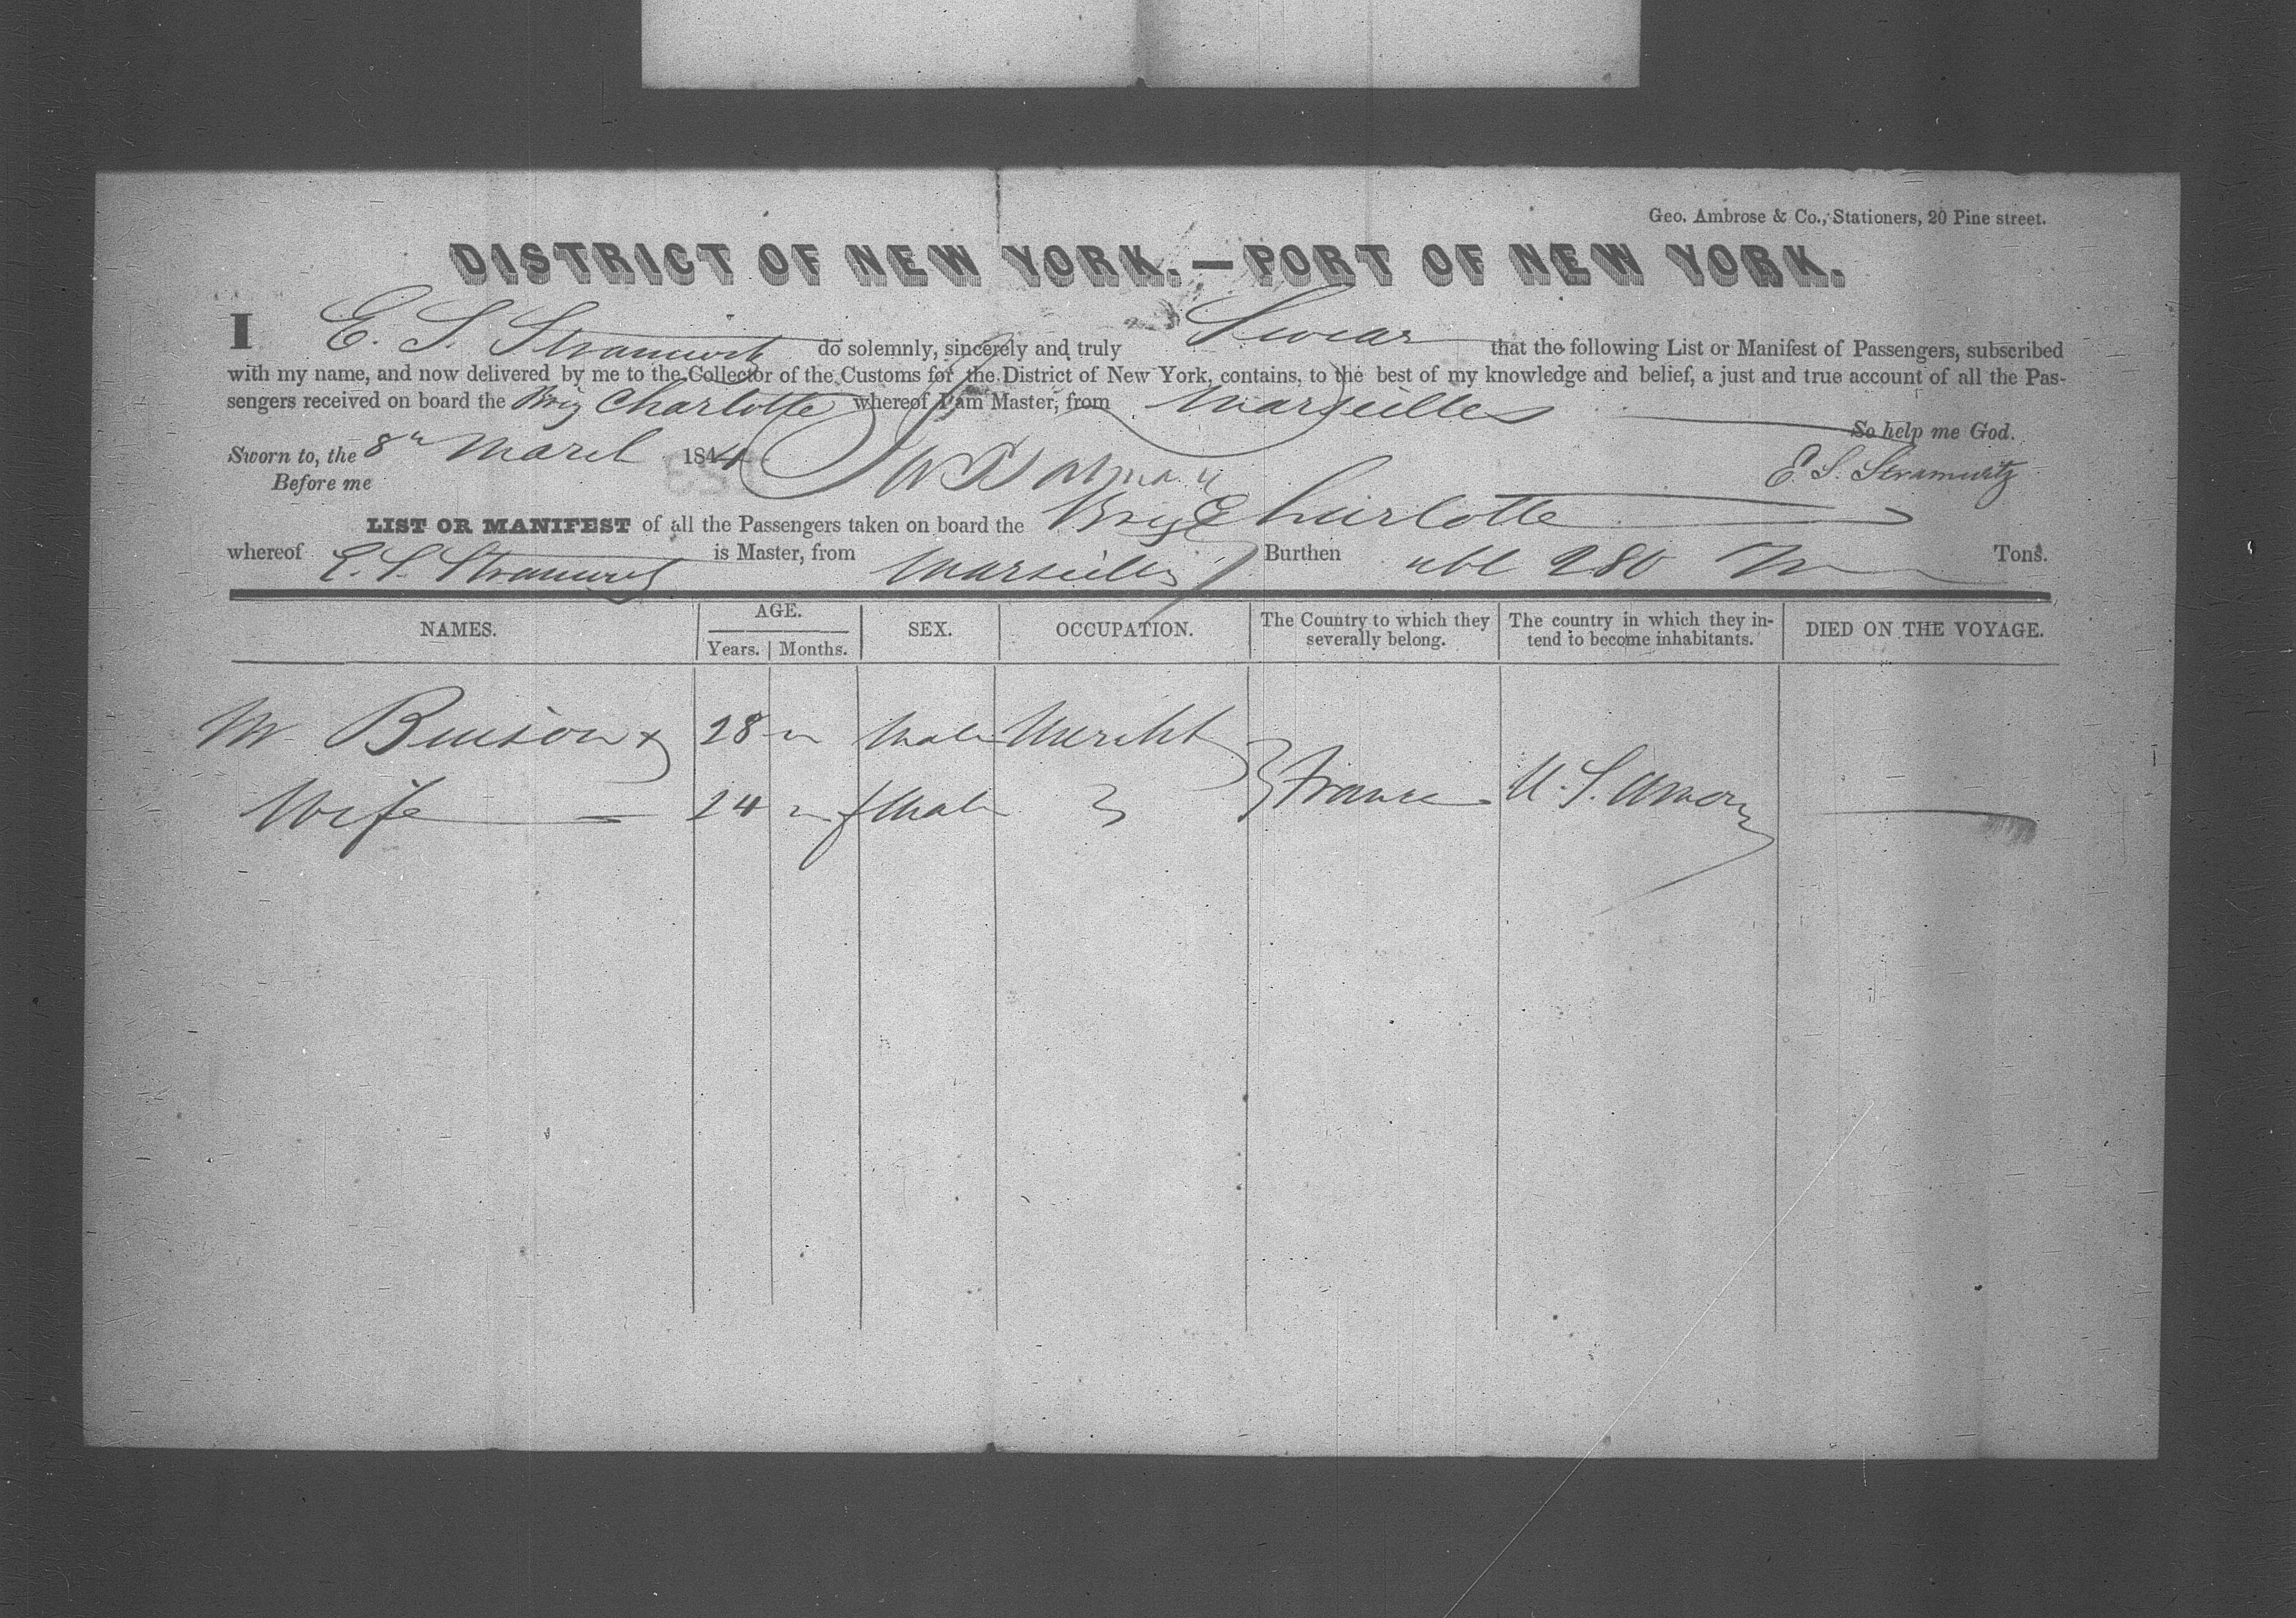 Geo. Ambrose & Co., Stationers, 20 Pine street.
DISTRICT OF NEW YORK.—PORT OF NEW YORK.
I E. S. do solemnly, sincerely and truly Swear that the following List or Manifest of Passengers, subscribed
with my name, and now delivered by me to the Collector of the Customs for the District of New York, contains, to the best of my knowledge and belief, a just and true account of all the Pas-
sengers received on board the Brig Charlotte whereof I am Master, from Marseilles
So help me God.
Sworn to, the 8th March 1844
E. S.
Before me
LIST OR MANIFEST of all the Passengers taken on board the Brig Charlotte
whereof E. S. is Master, from Marseilles Burthen 280 Tons.
NAMES. AGE. Years. Months. SEX. OCCUPATION. The Country to which they severally belong. The country in which they in-tend to become inhabitants. DIED ON THE VOYAGE.
M 28 Male Mercht
Wife 24 fMale France U. S.